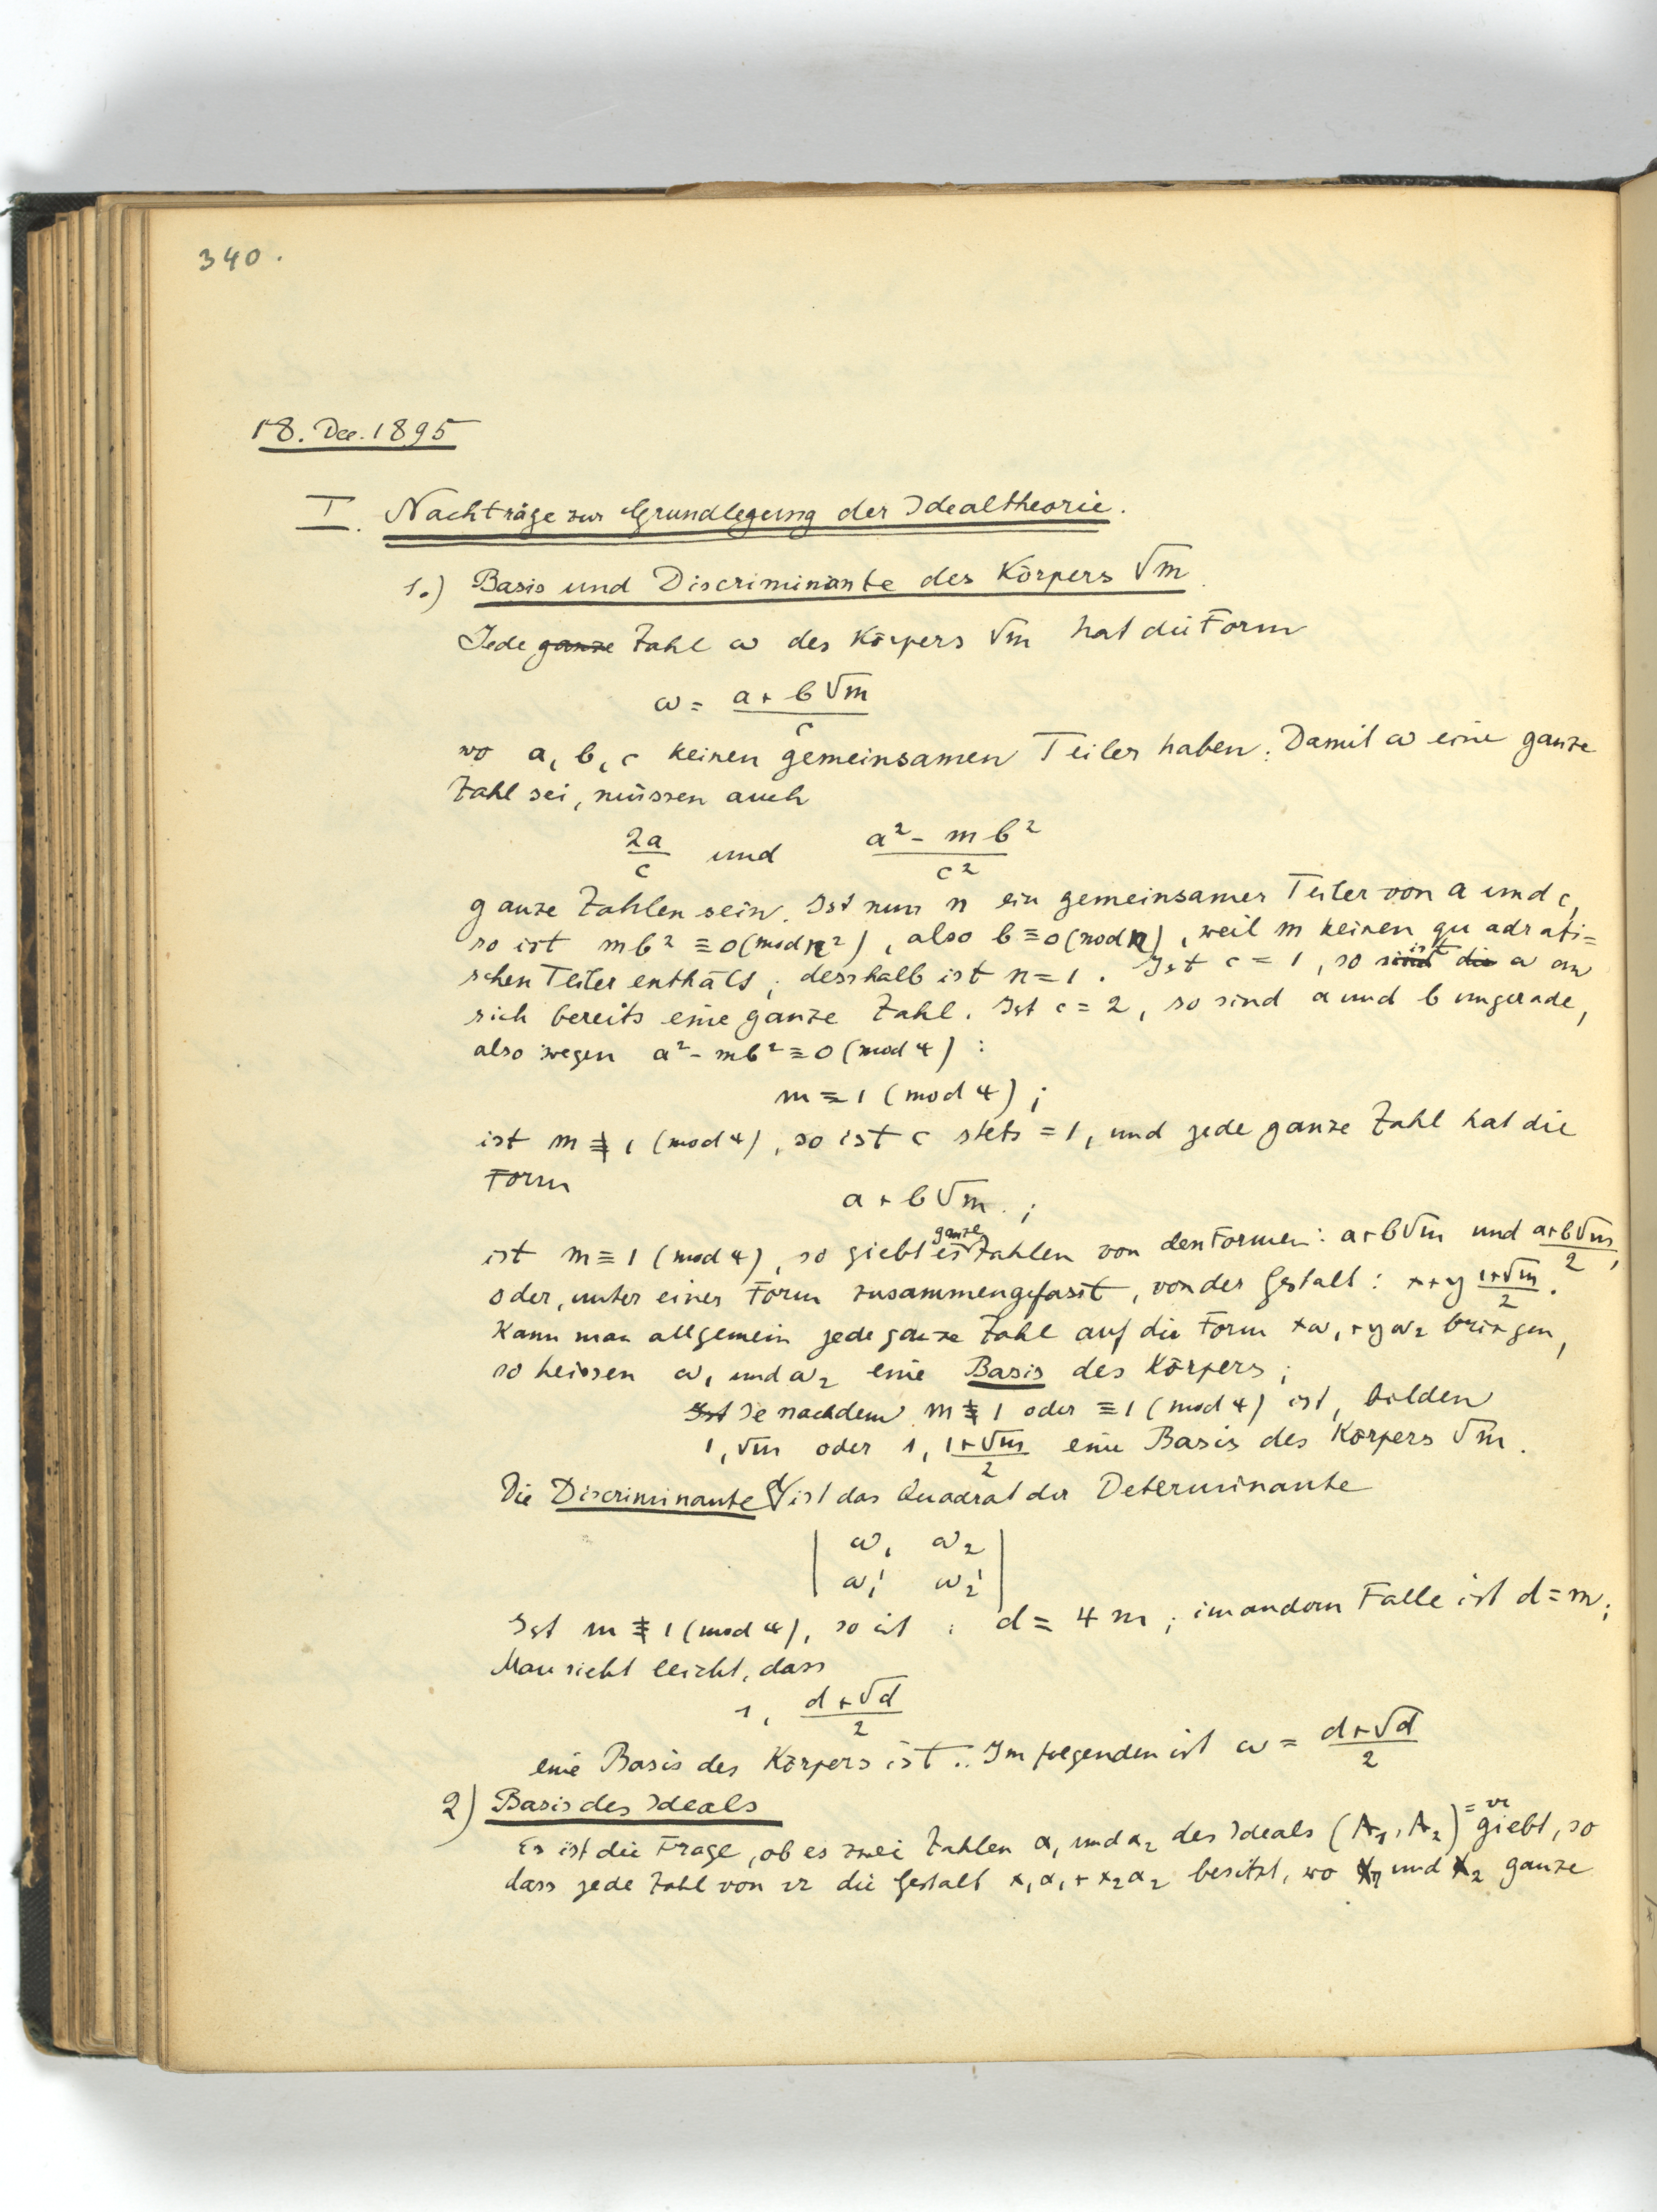 340.
18. Dec. 1895
I. Nachträge zur Grundlegung der Idealtheorie.
1.) Basis und Discriminante des Körpers √m.
Jede ganze Zahl ω des Körpers √m hat die Form
ω = (a + b√m)/c
wo a, b, c keinen gemeinsamen Teiler haben. Damit ω eine ganze
Zahl sei, müssen auch
2a/c und (a² - mb²)/c²
ganze Zahlen sein. Ist nun n ein gemeinsamer Teiler von a und c,
so ist mb² ≡ 0 (mod n²), also b ≡ 0 (mod n), weil m keinen quadrati=
schen Teiler enthält; desshalb ist n = 1. Ist c = 1, so sind die ist ω an
sich bereits eine ganze Zahl. Ist c = 2, so sind a und b ungerade,
also wegen a² - mb² ≡ 0 (mod 4) :
m ≡ 1 (mod 4) ;
ist m ≢ 1 (mod 4), so ist c stets = 1, und jede ganze Zahl hat die
Form
a + b√m. ;
ist m ≡ 1 (mod 4), so giebt es ganze Zahlen von den Formen: a+b√m und (a+b√m)/2,
oder, unter einer Form zusammengefasst, von der Gestalt: x+y (1+√m)/2.
Kann man allgemein jede ganze Zahl auf die Form xω₁+yω₂ bringen,
so heissen ω₁ und ω₂ eine Basis des Körpers;
Ist Je nachdem m ≢ 1 oder ≡ 1 (mod 4) ist, bilden
1, √m oder 1, (1+√m)/2 eine Basis des Körpers √m.
Die Discriminante d ist das Quadrat der Determinante
| ω₁ ω₂ |
| ω₁' ω₂' |
Ist m ≢ 1 (mod 4), so ist : d = 4m ; im andern Falle ist d = m;
Man sieht leicht, dass
1, (d + √d)/2
eine Basis des Körpers ist.. Im folgenden ist ω = (d+√d)/2
2) Basis des Ideals
Es ist die Frage, ob es zwei Zahlen α₁ und α₂ des Ideals (A₁, A₂) = 𝔞 giebt, so
dass jede Zahl von 𝔞 die Gestalt x₁α₁ + x₂α₂ besitzt, wo x₁ und x₂ ganze